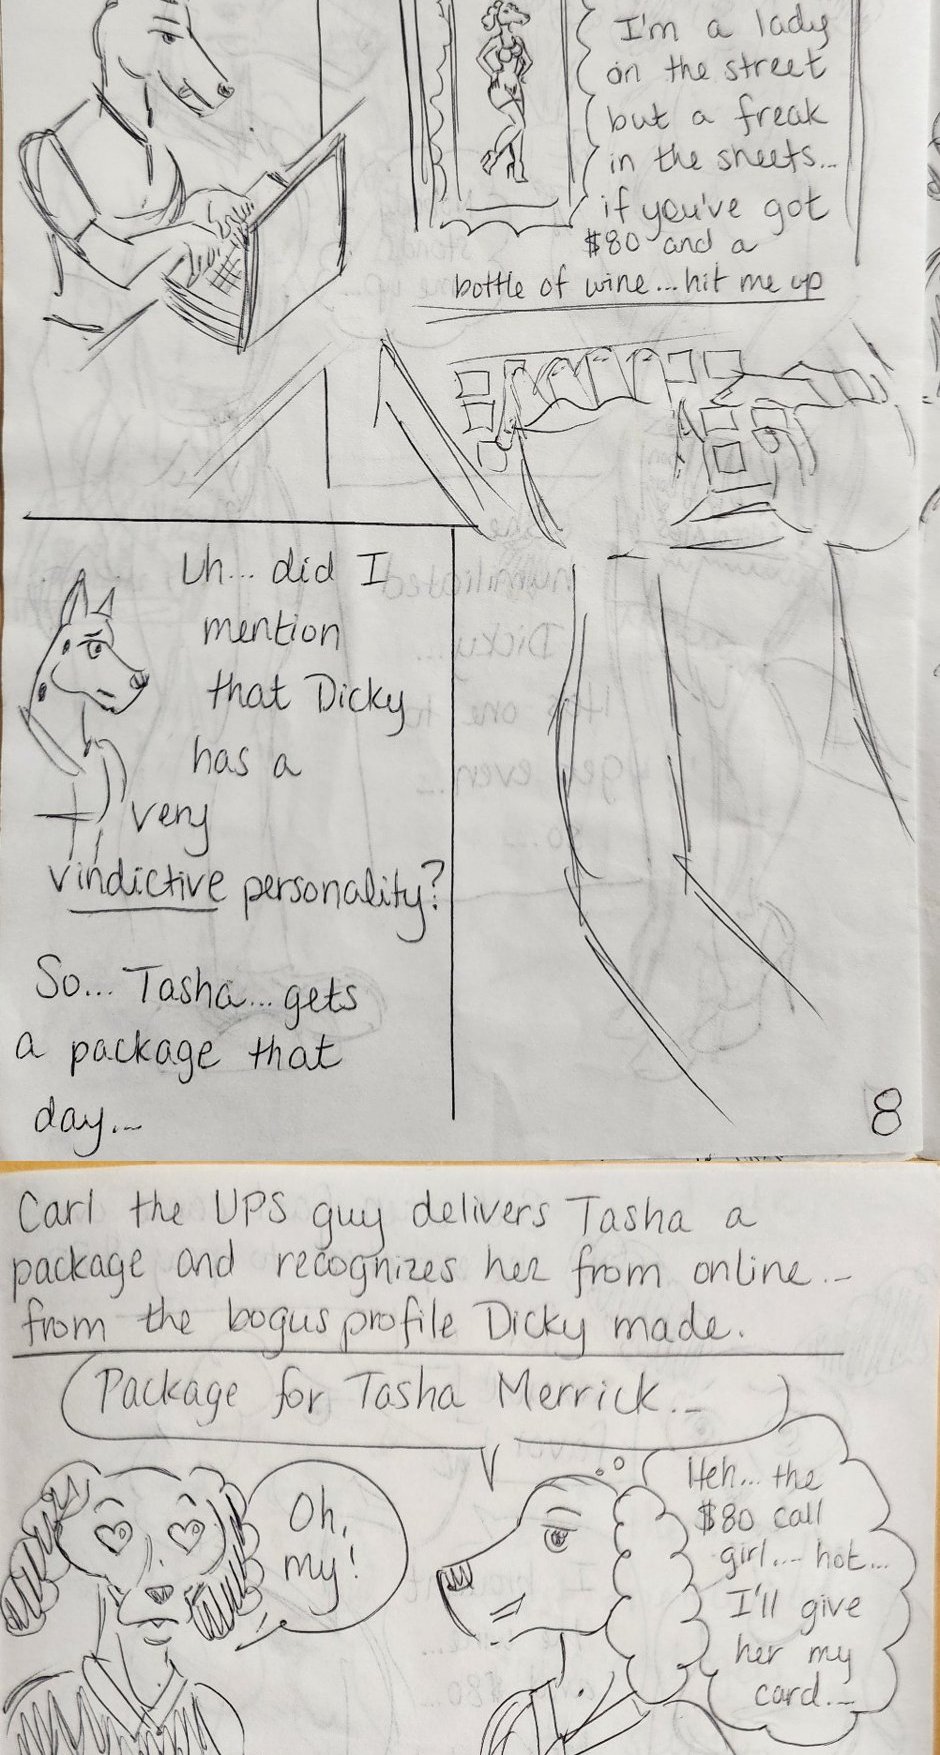 I'm a lady
on the street
but a freak
in the sheets...
if you've got
$80 and a
bottle of wine...hit me up
Uh... did I
mention
that Dicky
has a
very
vindictive personality?
So... Tasha... gets
a package that
day...
8
Carl the UPS guy delivers Tasha a
package and recognizes her from online...
from the bogus profile Dicky made.
Package for Tasha Merrick...
Oh,
my!
Heh... the
$80 call
girl... hot...
I'll give
her my
card...